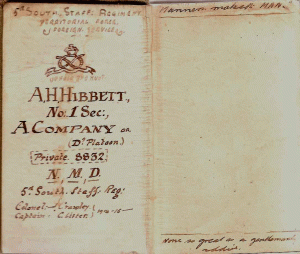 5th South Staff. Regiment
Territorial Force
Foreign Service
A.H. Hibbett,
No. 1 Sec:,
A Company on
(D. Platoon)
Private 8832
N. M. D.
5th South. Staff. Reg:
Colonel Crawley
Captain Lister 1914-15
Manners maketh Man.
None so great as a gentleman